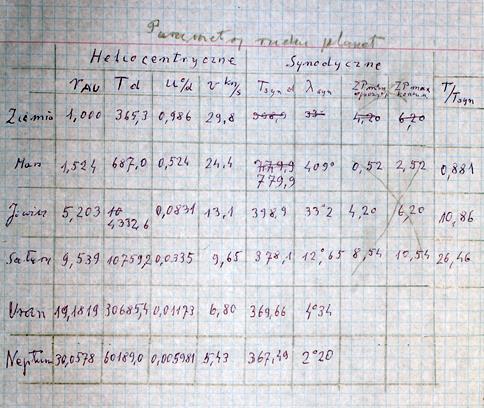 Parametry ruchu planet
Heliocentryczne Synodyczne
r AU T d u °/d v km/s Tsyn d λ syn ZP min ZP max T/Tsyn
Ziemia 1,000 365,3 0,986 29,8 398,9 33° 4,20 6,20
Mars 1,524 687,0 0,524 24,4 779,9 409° 0,52 2,52 0,881
779,9
Jowisz 5,203 10 4332,6 0,0831 13,1 398,9 33°2 4,20 6,20 10,86
Saturn 9,539 10759,2 0,0335 9,65 378,1 12°,65 8,54 10,54 26,46
Uran 19,1819 30685,4 0,01173 6,80 369,66 4°34
Neptun 30,0578 60189,0 0,005981 5,43 367,49 2°20